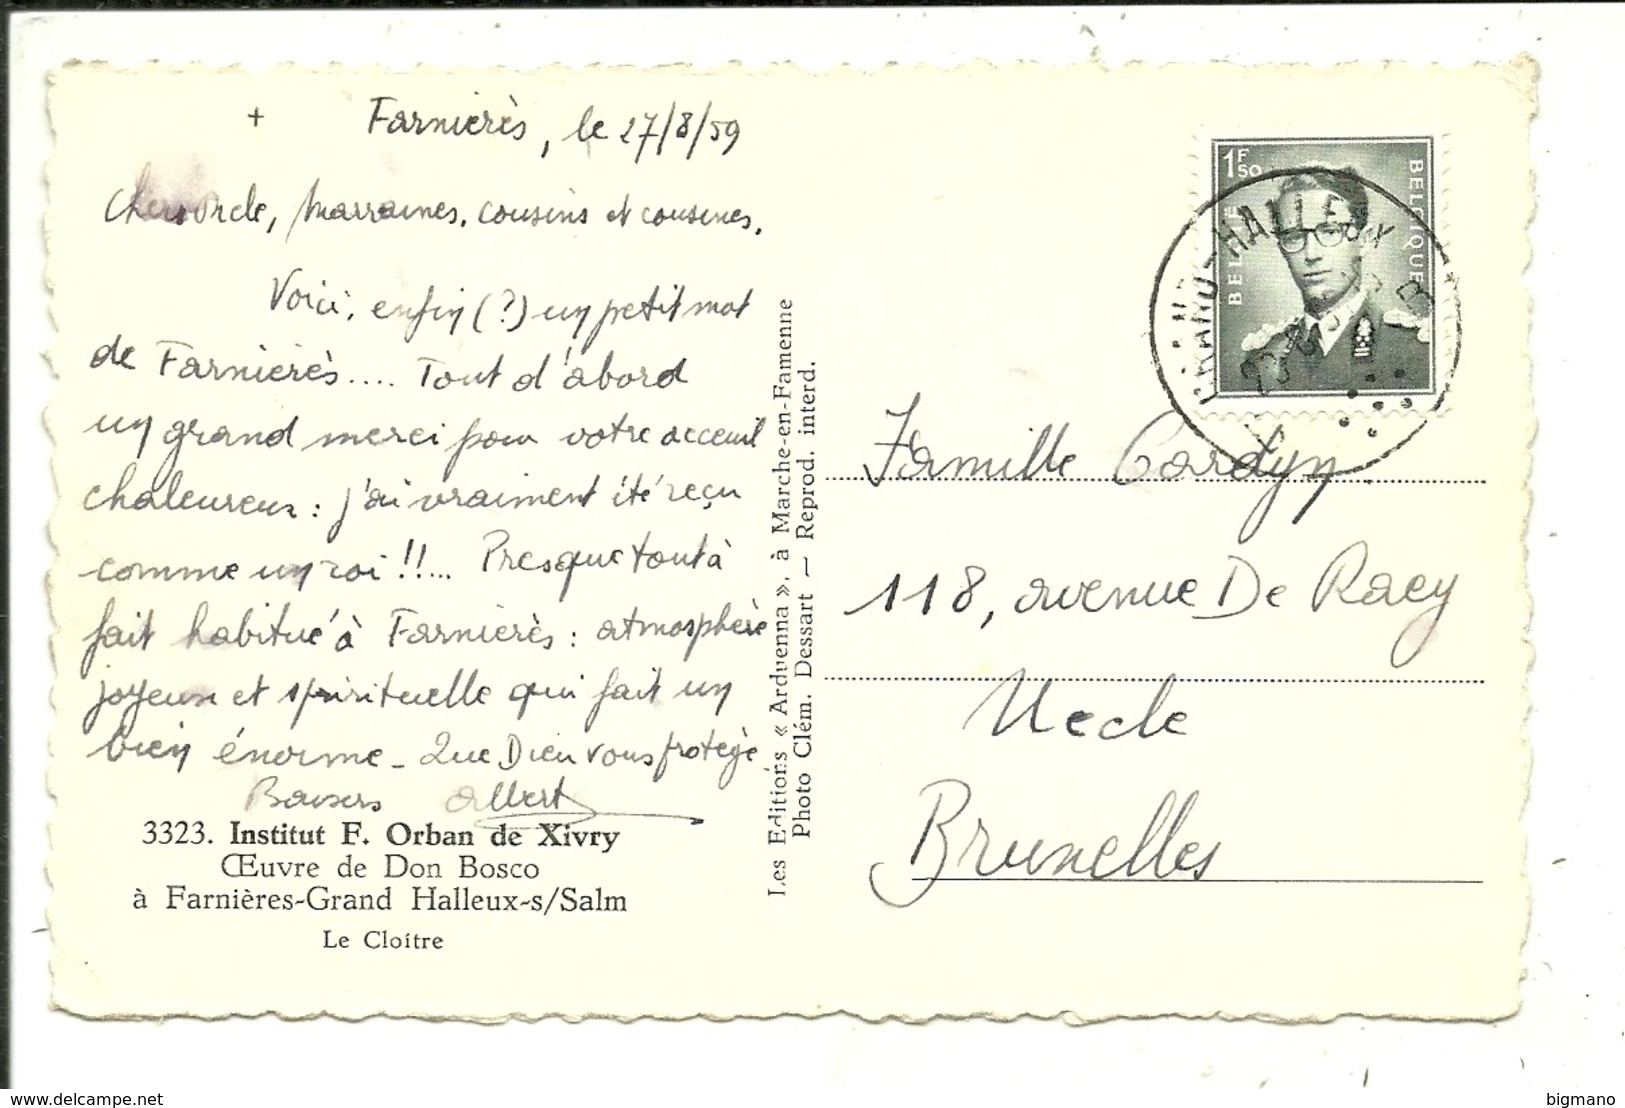 + Farnières, le 27/8/59
Chers oncle, marraines, cousins et cousines,
Voici, enfin (?) un petit mot
de Farnières.... Tout d'abord
un grand merci pour votre acceuil
chaleureux : j'ai vraiment été reçu
comme un roi !!... Presque tout à
fait habitué à Farnières : atmosphère
joyeuse et spirituelle qui fait un
bien énorme - Que Dieu vous protège
Baisers Albert
3323. Institut F. Orban de Xivry
Œuvre de Don Bosco
à Farnières-Grand Halleux-s/Salm
Le Cloître
Les Editions « Arduenna », à Marche-en-Famenne
Photo Clém. Dessart — Reprod. interd.
1F50
BELGIE
BELGIQUE
GRAND-HALLEUX
Famille Cardyn
118, avenue De Raey
Uccle
Bruxelles
delcampe.net
bigmano